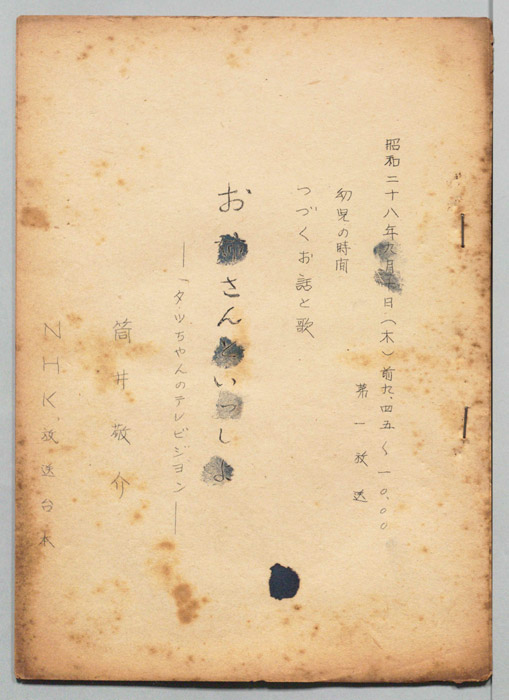 昭和二十八年九月十日（木）前九、四五〜一〇、〇〇
第一放送
幼児の時間
つづくお話と歌
お姉さんといっしょ
―「タッちゃんのテレビジョン」―
筒井敬介
NHK放送台本